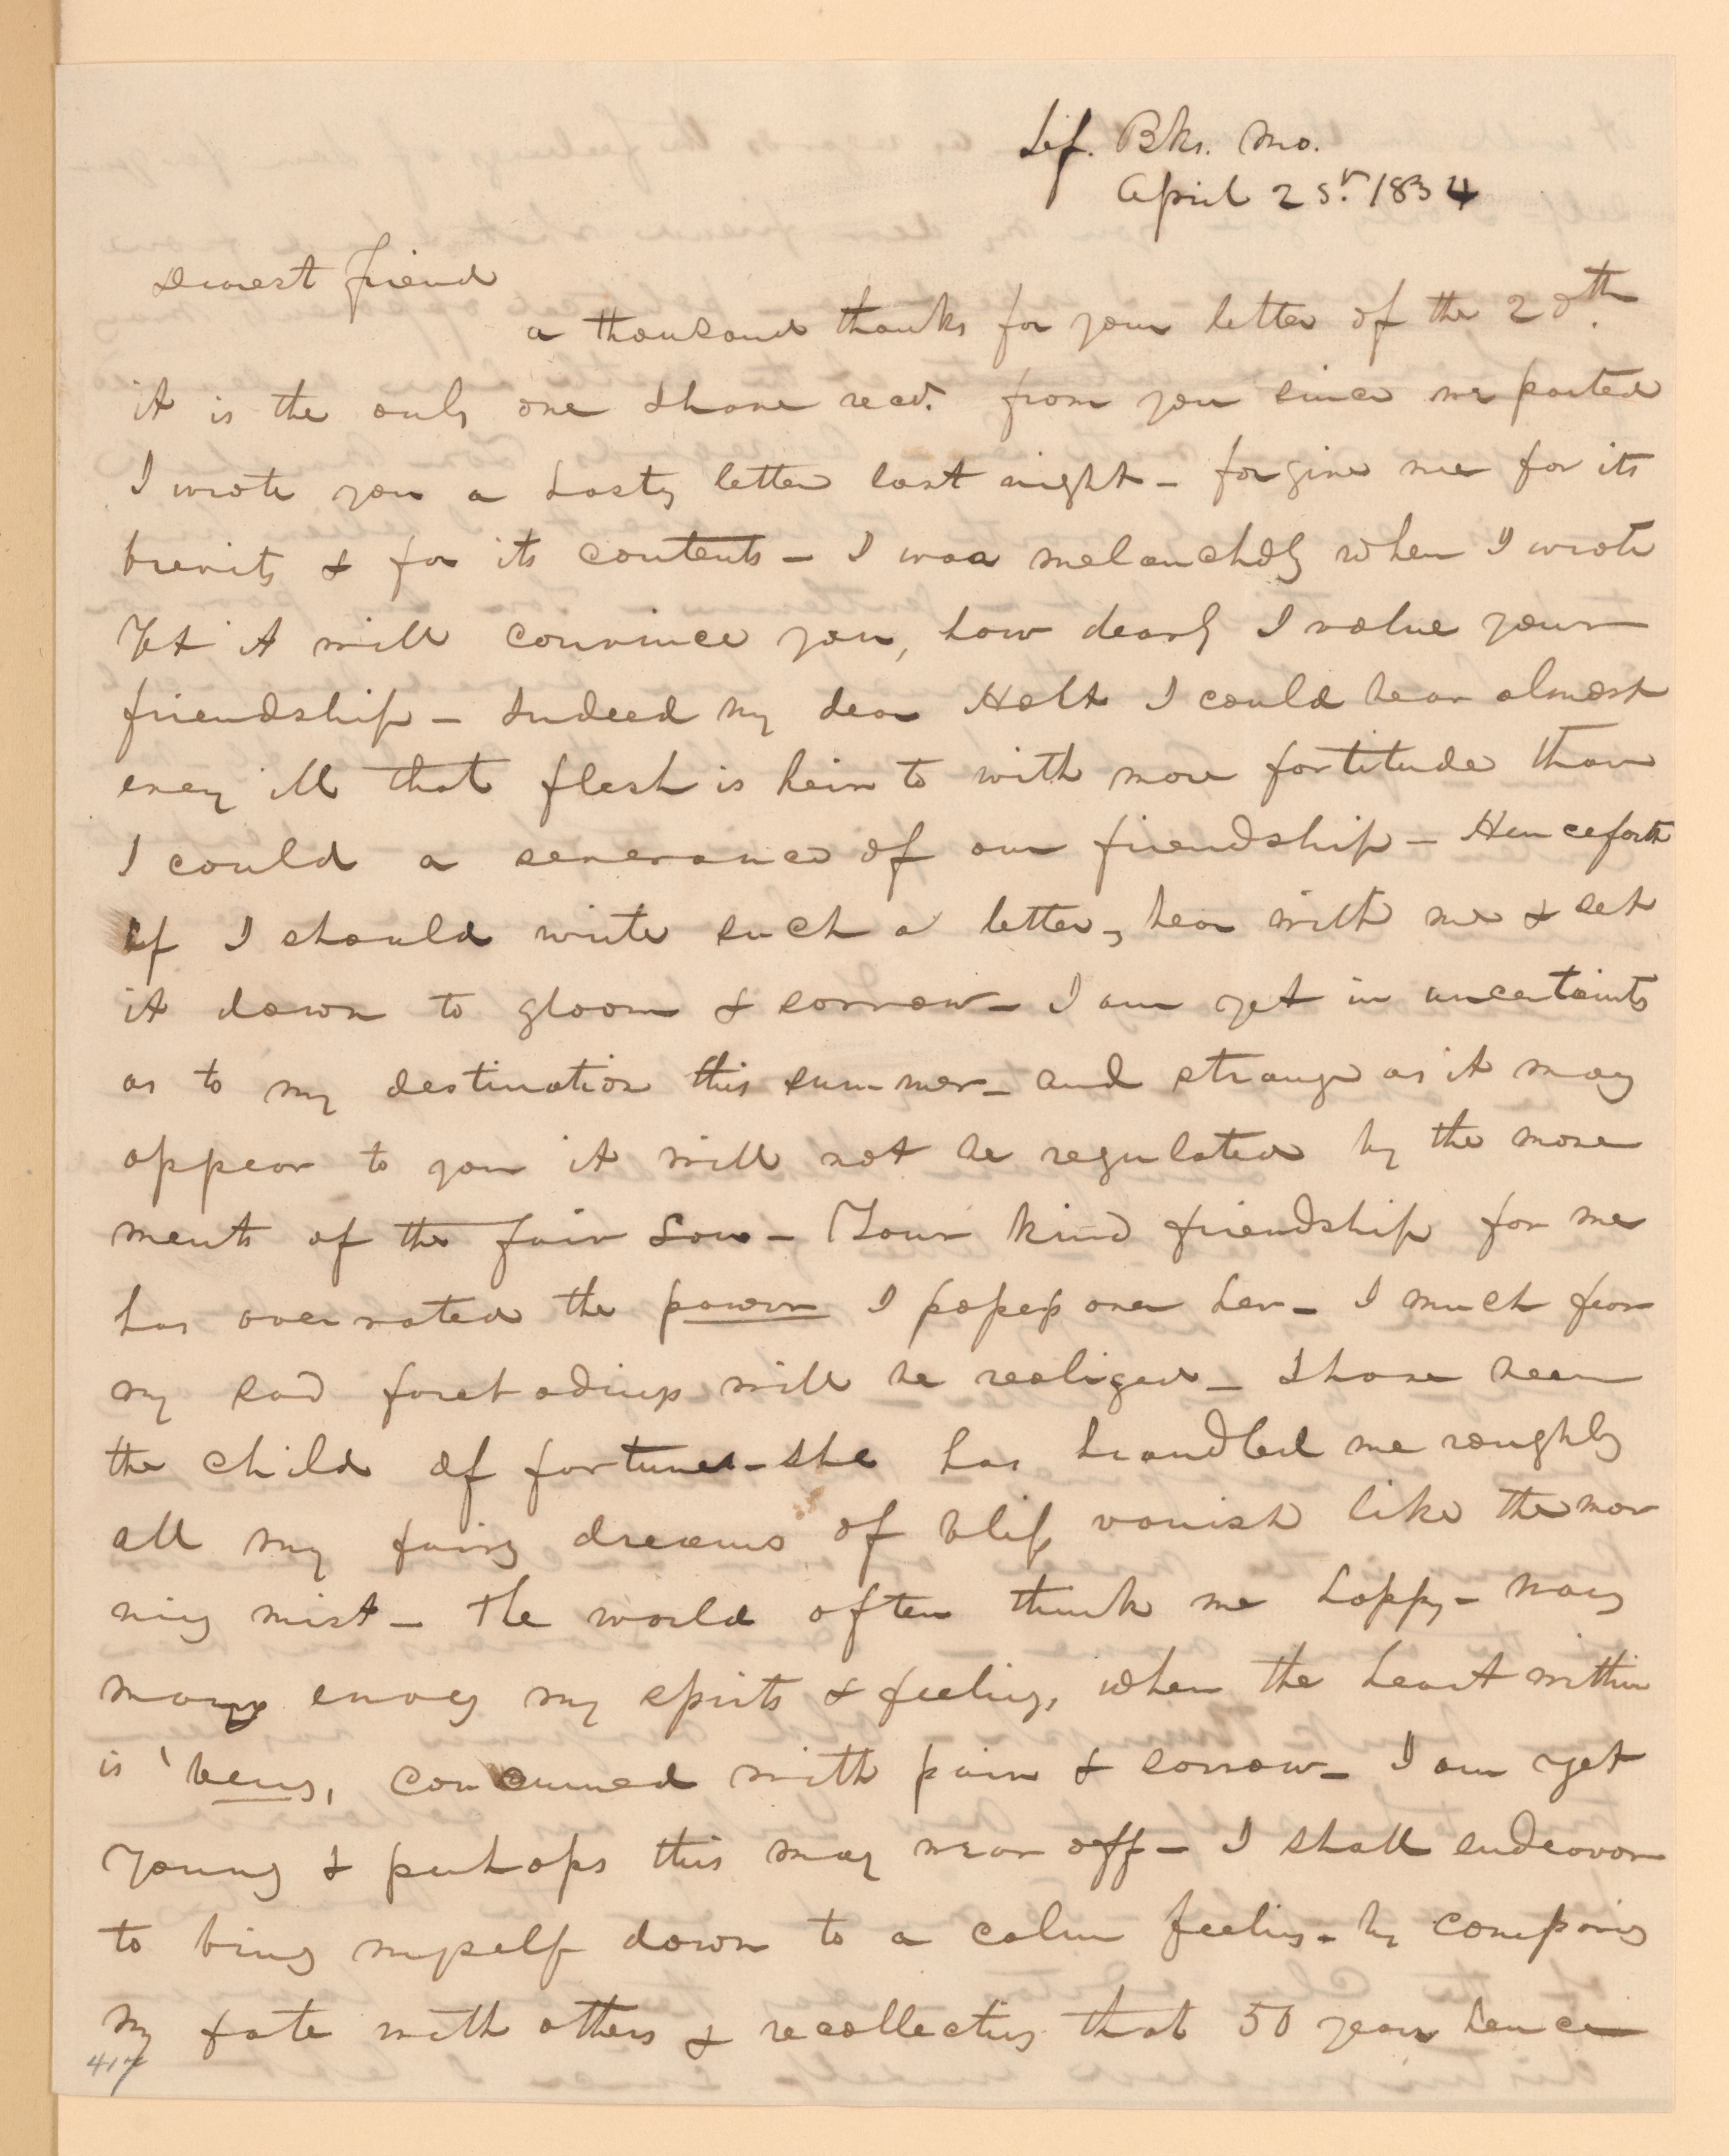 Jef. Bks. Mo.
April 25th 1834
Dearest friend
a thousand thanks for your letter of the 20th.
it is the only one I have recd. from you since we parted
I wrote you a hasty letter last night – forgive me for its
brevity & for its contents – I was melancholy when I wrote
Yet it will convince you, how dearly I value your
friendship – Indeed my dear Holt I could bear almost
every ill that flesh is heir to with more fortitude than
I could a severance of our friendship – Henceforth
if I should write such a letter, bear with me & set
it down to gloom & sorrow – I am yet in uncertainty
as to my destination this summer – and strange as it may
appear to you it will not be regulated by the move
ments of the fair Lou – Your kind friendship for me
has over rated the power I possess over her – I much fear
my sad forebodings will be realized – I have been
the child of fortune – she has handled me roughly
all my fairy dreams of bliss vanish like the mor
ning mist – The world often think me happy – many
many envy my spirits & feelings, when the heart within
is 'being, consumed with pain & sorrow – I am yet
young & perhaps this may wear off – I shall endeavor
to bring myself down to a calm feeling – by comparing
my fate with others & recollecting that 50 years hence
417